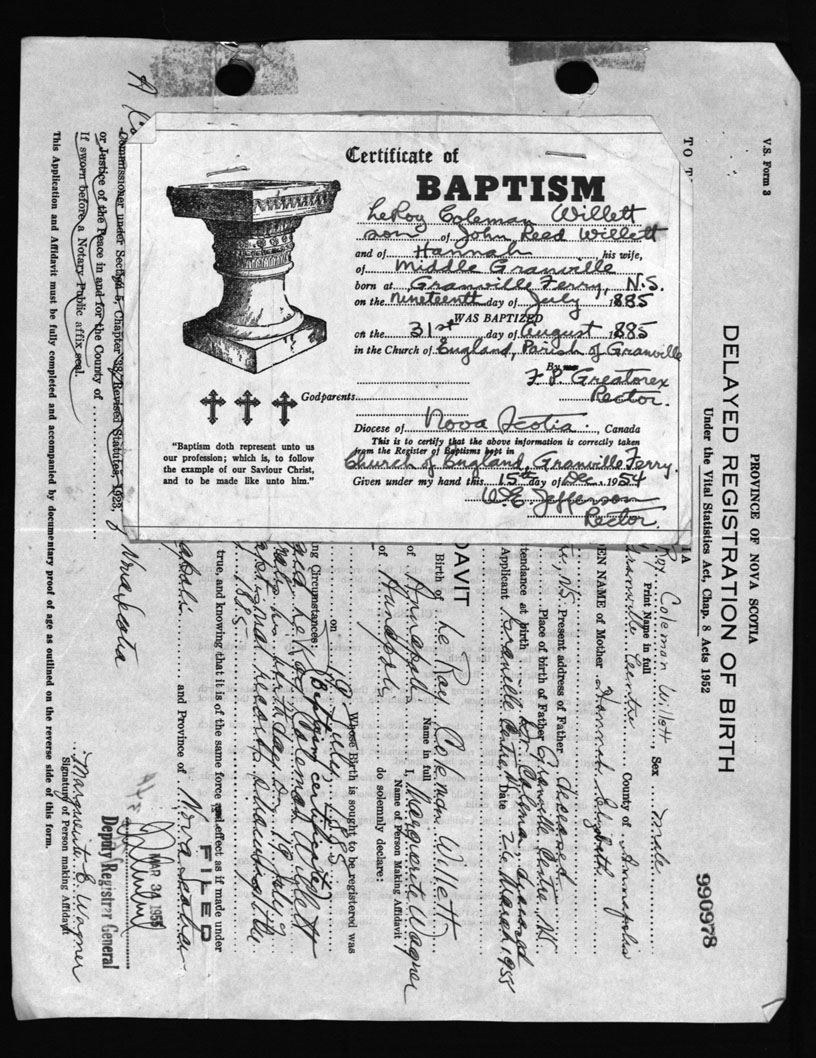 Certificate of
BAPTISM
LeRoy Coleman Willett
son of John Reed Willett
and of Hannah his wife,
of Middle Granville
born at Granville Ferry, N.S.
on the nineteenth day of July 1885
WAS BAPTIZED
on the 31st day of August 1885
in the Church of England, Parish of Granville
By
F. P. Greatorex
Rector.
Godparents
Diocese of Nova Scotia, Canada
This is to certify that the above information is correctly taken
from the Register of Baptisms kept in
Church of England, Granville Ferry.
Given under my hand this 15th day of Dec. 1954
W.E. Jefferson
Rector.
"Baptism doth represent unto us
our profession; which is, to follow
the example of our Saviour Christ,
and to be made like unto him."
V.S. Form 3
PROVINCE OF NOVA SCOTIA
DELAYED REGISTRATION OF BIRTH
Under the Vital Statistics Act, Chap. 8 Acts 1952
990978
TO
Roy Coleman Willett, Sex male
Print Name in full
Granville Centre County of Annapolis
EN NAME of Mother Hannah Elizabeth
N.S. Present address of Father deceased
Place of birth of Father Granville Centre, N.S.
ttendance at birth Dr. Coleman deceased
Applicant Granville Centre, N.S. Date 26 March 1955
DAVIT
Birth of Le Roy Coleman Willett
Name in full
of Annapolis I, Marguerite Wagner
Name of Person Making Affidavit
of Annapolis do solemnly declare:
Whose Birth is sought to be registered was
on 19 July, 1885
ng Circumstances: (Baptism certificate)
said LeRoy Coleman Willett
his birthday on 19 July
baptismal records showing the
1885
true, and knowing that it is of the same force and effect as if made under
apolis and Province of Nova Scotia
FILED
MAR 30 1955
Deputy Registrar General
Nova Scotia
Commissioner under Section 5, Chapter 38, Revised Statutes, 1923,
or Justice of the Peace in and for the County of
If sworn before a Notary Public affix seal.
Marguerite E. Wagner
Signature of Person making Affidavit
This Application and Affidavit must be fully completed and accompanied by documentary proof of age as outlined on the reverse side of this form.